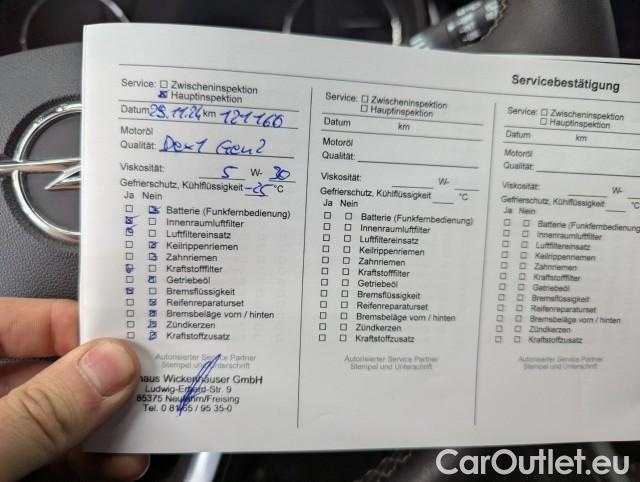 Servicebestätigung
Service: Zwischeninspektion
Hauptinspektion
Datum 29.11.24 km 121166
Motoröl
Qualität: Dex1 Gen2
Viskosität: 5 W- 30
Gefrierschutz, Kühlflüssigkeit -25 °C
Ja Nein
Batterie (Funkfernbedienung)
Innenraumluftfilter
Luftfiltereinsatz
Keilrippenriemen
Zahnriemen
Kraftstofffilter
Getriebeöl
Bremsflüssigkeit
Reifenreparaturset
Bremsbeläge vorn / hinten
Zündkerzen
Kraftstoffzusatz
Autorisierter Service Partner
Stempel und Unterschrift
haus Wickenhäuser GmbH
Ludwig-Erhard-Str. 9
85375 Neufahrn/Freising
Tel. 0 81 65 / 95 35-0
Service: Zwischeninspektion
Hauptinspektion
Datum km
Motoröl
Qualität:
Viskosität: W-
Gefrierschutz, Kühlflüssigkeit °C
Ja Nein
Batterie (Funkfernbedienung)
Innenraumluftfilter
Luftfiltereinsatz
Keilrippenriemen
Zahnriemen
Kraftstofffilter
Getriebeöl
Bremsflüssigkeit
Reifenreparaturset
Bremsbeläge vorn / hinten
Zündkerzen
Kraftstoffzusatz
Autorisierter Service Partner
Stempel und Unterschrift
Service: Zwischeninspektion
Hauptinspektion
Datum km
Motoröl
Qualität:
Viskosität: W-
Gefrierschutz, Kühlflüssigkeit
Ja Nein
Batterie (Funkfernbedienung)
Innenraumluftfilter
Luftfiltereinsatz
Keilrippenriemen
Zahnriemen
Kraftstofffilter
Getriebeöl
Bremsflüssigkeit
Reifenreparaturset
Bremsbeläge vorn / hinten
Zündkerzen
Kraftstoffzusatz
Autorisierter Service Partner
Stempel und Unterschrift
CarOutlet.eu